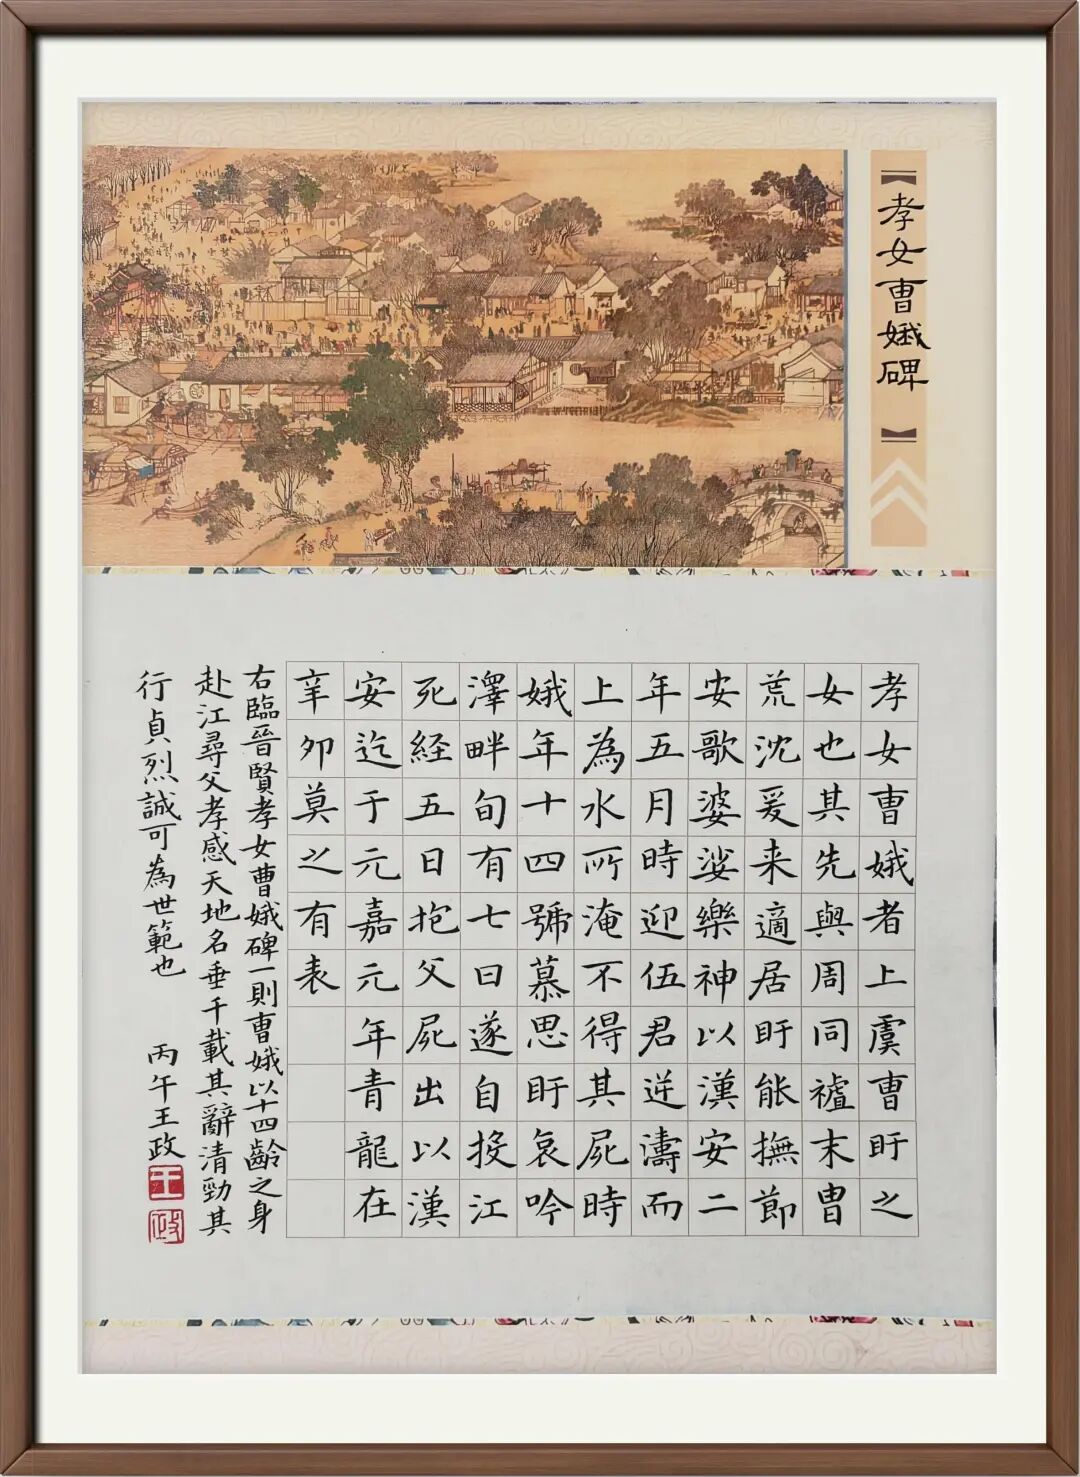 孝女曹娥碑
孝女曹娥者上虞曹盱之
女也其先與周同禬末冑
荒沈爰来適居盱能撫節
安歌婆娑樂神以漢安二
年五月時迎伍君逆濤而
上為水所淹不得其屍時
娥年十四號慕思盱哀吟
澤畔旬有七日遂自投江
死経五日抱父屍出以漢
安迄于元嘉元年青龍在
辛卯莫之有表
右臨晉賢孝女曹娥碑一則曹娥以十四齡之身
赴江尋父孝感天地名垂千載其辭清勁其
行貞烈誠可為世範也
丙午王政
王
政